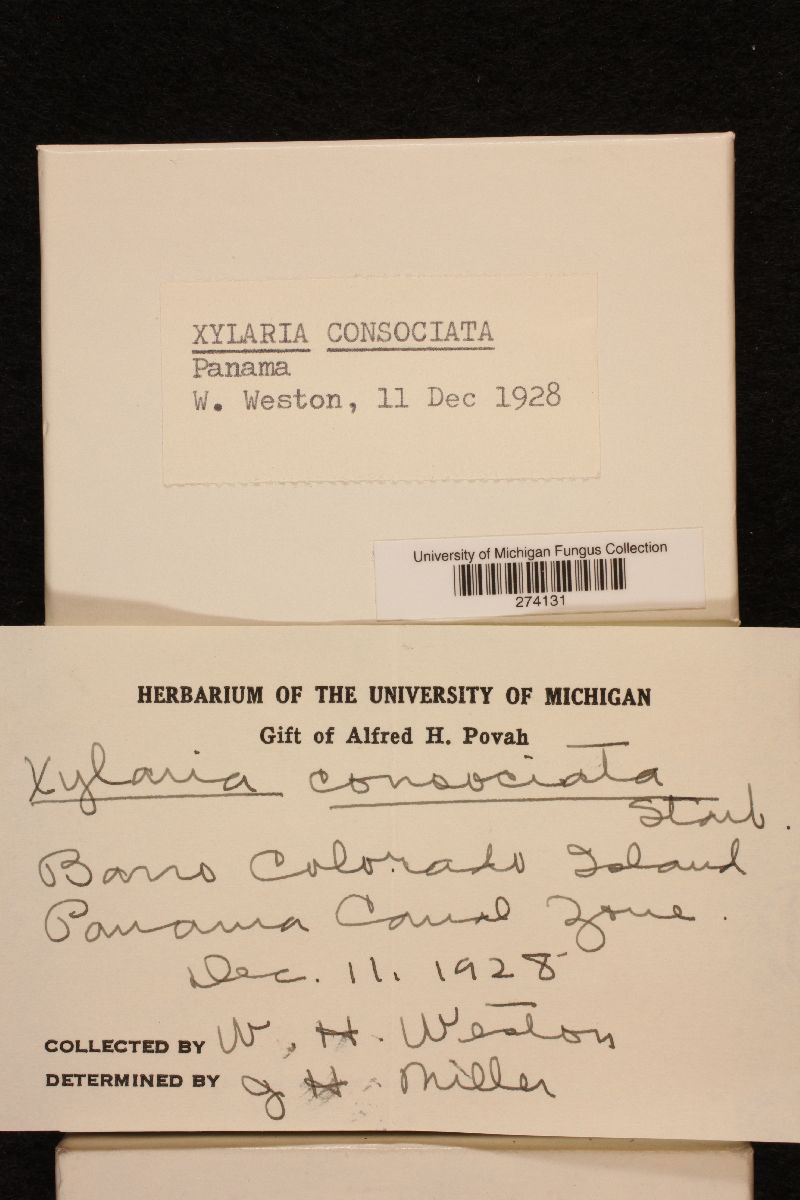 XYLARIA CONSOCIATA
Panama
W. Weston, 11 Dec 1928
University of Michigan Fungus Collection
274131
HERBARIUM OF THE UNIVERSITY OF MICHIGAN
Gift of Alfred H. Povah
Xylaria consociata
Starb.
Barro Colorado Island
Panama Canal Zone.
Dec. 11, 1928
COLLECTED BY W. H. Weston
DETERMINED BY J H. Miller